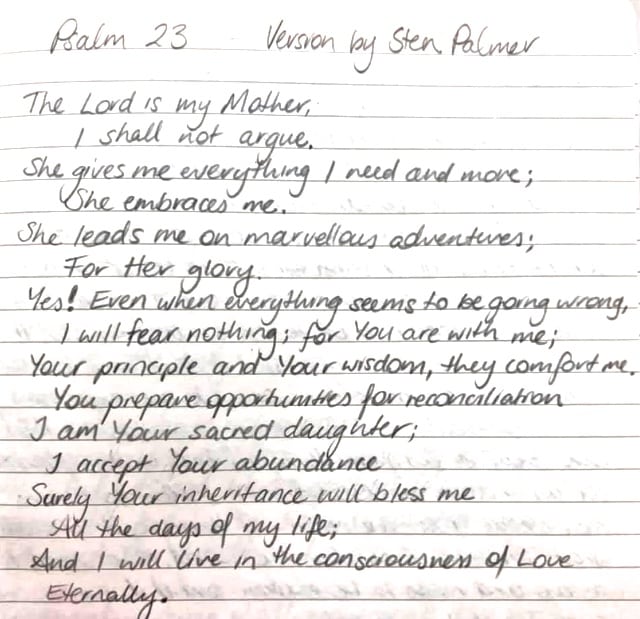 Psalm 23 Version by Sten Palmer
The Lord is my Mother,
I shall not argue.
She gives me everything I need and more;
She embraces me.
She leads me on marvellous adventures;
For Her glory.
Yes! Even when everything seems to be going wrong,
I will fear nothing; for You are with me;
Your principle and Your wisdom, they comfort me.
You prepare opportunities for reconciliation
I am Your sacred daughter;
I accept Your abundance
Surely Your inheritance will bless me
All the days of my life;
And I will live in the consciousness of Love
Eternally.